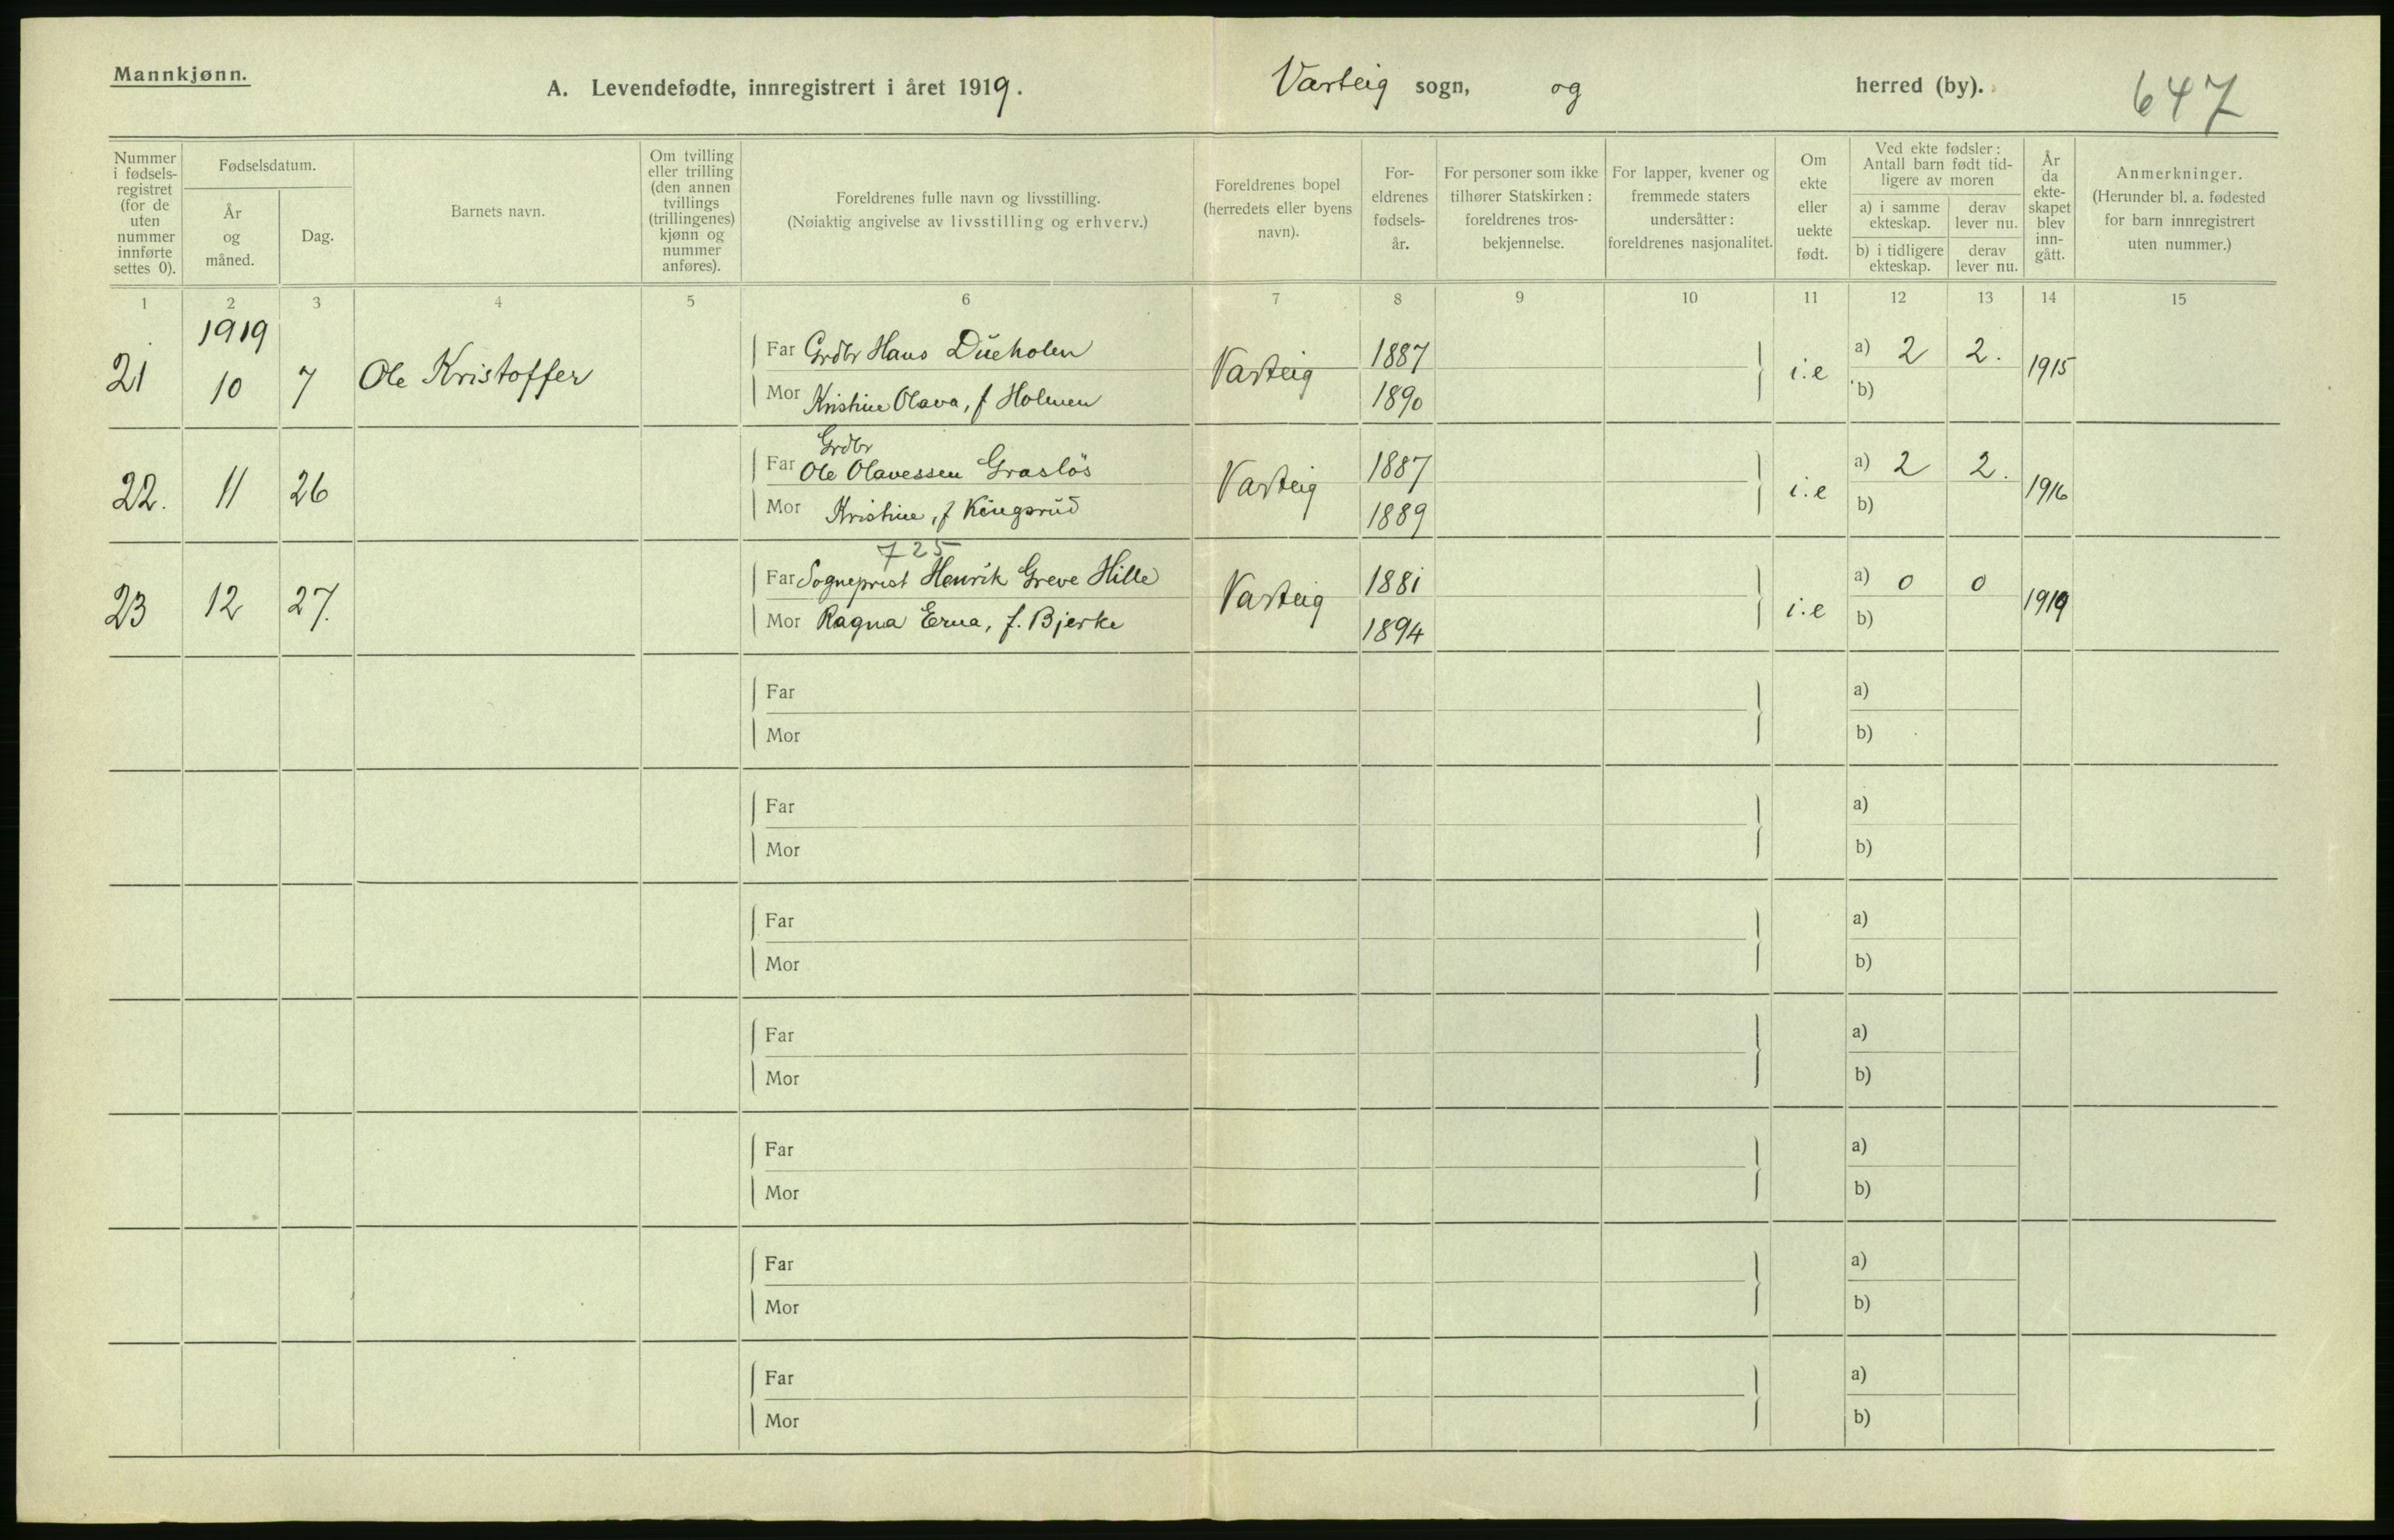 Mannkjønn.
A. Levendefødte, innregistrert i året 1919.
Varteig sogn, og herred (by).
647
Nummer i fødsels-registret (for de uten nummer innførte settes 0).
Fødselsdatum.
År og måned.
Dag.
Barnets navn.
Om tvilling eller trilling (den annen tvillings (trillingenes) kjønn og nummer anføres).
Foreldrenes fulle navn og livsstilling.
(Nøiaktig angivelse av livsstilling og erhverv.)
Foreldrenes bopel (herredets eller byens navn).
For-eldrenes fødsels-år.
For personer som ikke tilhører Statskirken: foreldrenes tros-bekjennelse.
For lapper, kvener og fremmede staters undersåtter: foreldrenes nasjonalitet.
Om ekte eller uekte født.
Ved ekte fødsler: Antall barn født tid-ligere av moren
a) i samme ekteskap.
derav lever nu.
b) i tidligere ekteskap.
derav lever nu.
År da ekte-skapet blev inn-gått.
Anmerkninger.
(Herunder bl. a. fødested for barn innregistrert uten nummer.)
1 2 3 4 5 6 7 8 9 10 11 12 13 14 15
1919
21 10 7 Ole Kristoffer
Far Grdbr Hans Dueholen
Mor Kristine Olava, f Holmen
Varteig 1887 1890 i.e a) 2 2. b) 1915
22. 11 26
Grdbr
Far Ole Olavessen Grasløs
Mor Kristine, f Kingsrud
Varteig 1887 1889 i.e a) 2 2. b) 1916
725
23 12 27.
Far Sogneprest Henrik Greve Hille
Mor Ragna Erna, f. Bjerke
Varteig 1881 1894 i.e a) 0 0 b) 1919
Far a)
Mor b)
Far a)
Mor b)
Far a)
Mor b)
Far a)
Mor b)
Far a)
Mor b)
Far a)
Mor b)
Far a)
Mor b)